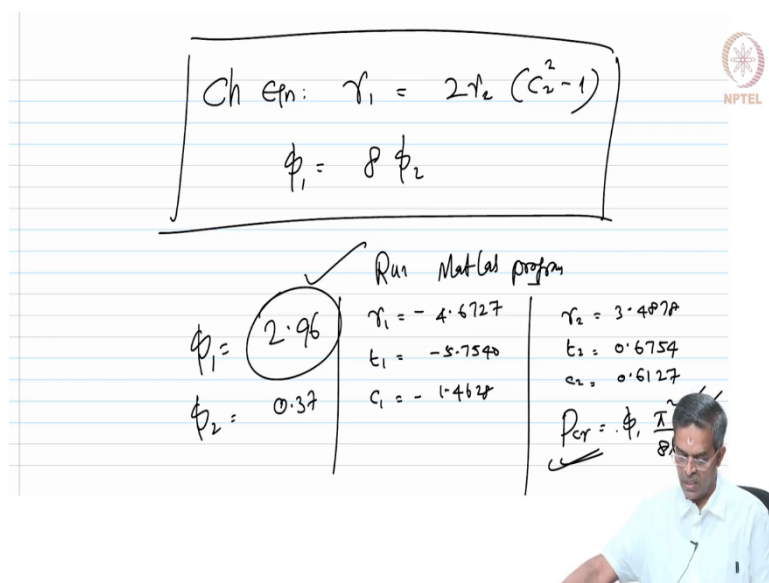 Ch Eqn: r₁ = 2r₂ (c₂² - 1)
ϕ₁ = 8 ϕ₂
NPTEL
Run MatLab program
ϕ₁ = 2.96
ϕ₂ = 0.37
r₁ = - 4.6727
t₁ = -5.7540
c₁ = - 1.4628
r₂ = 3.4878
t₂ = 0.6754
c₂ = 0.6127
Pcr = ϕ₁ π²
8